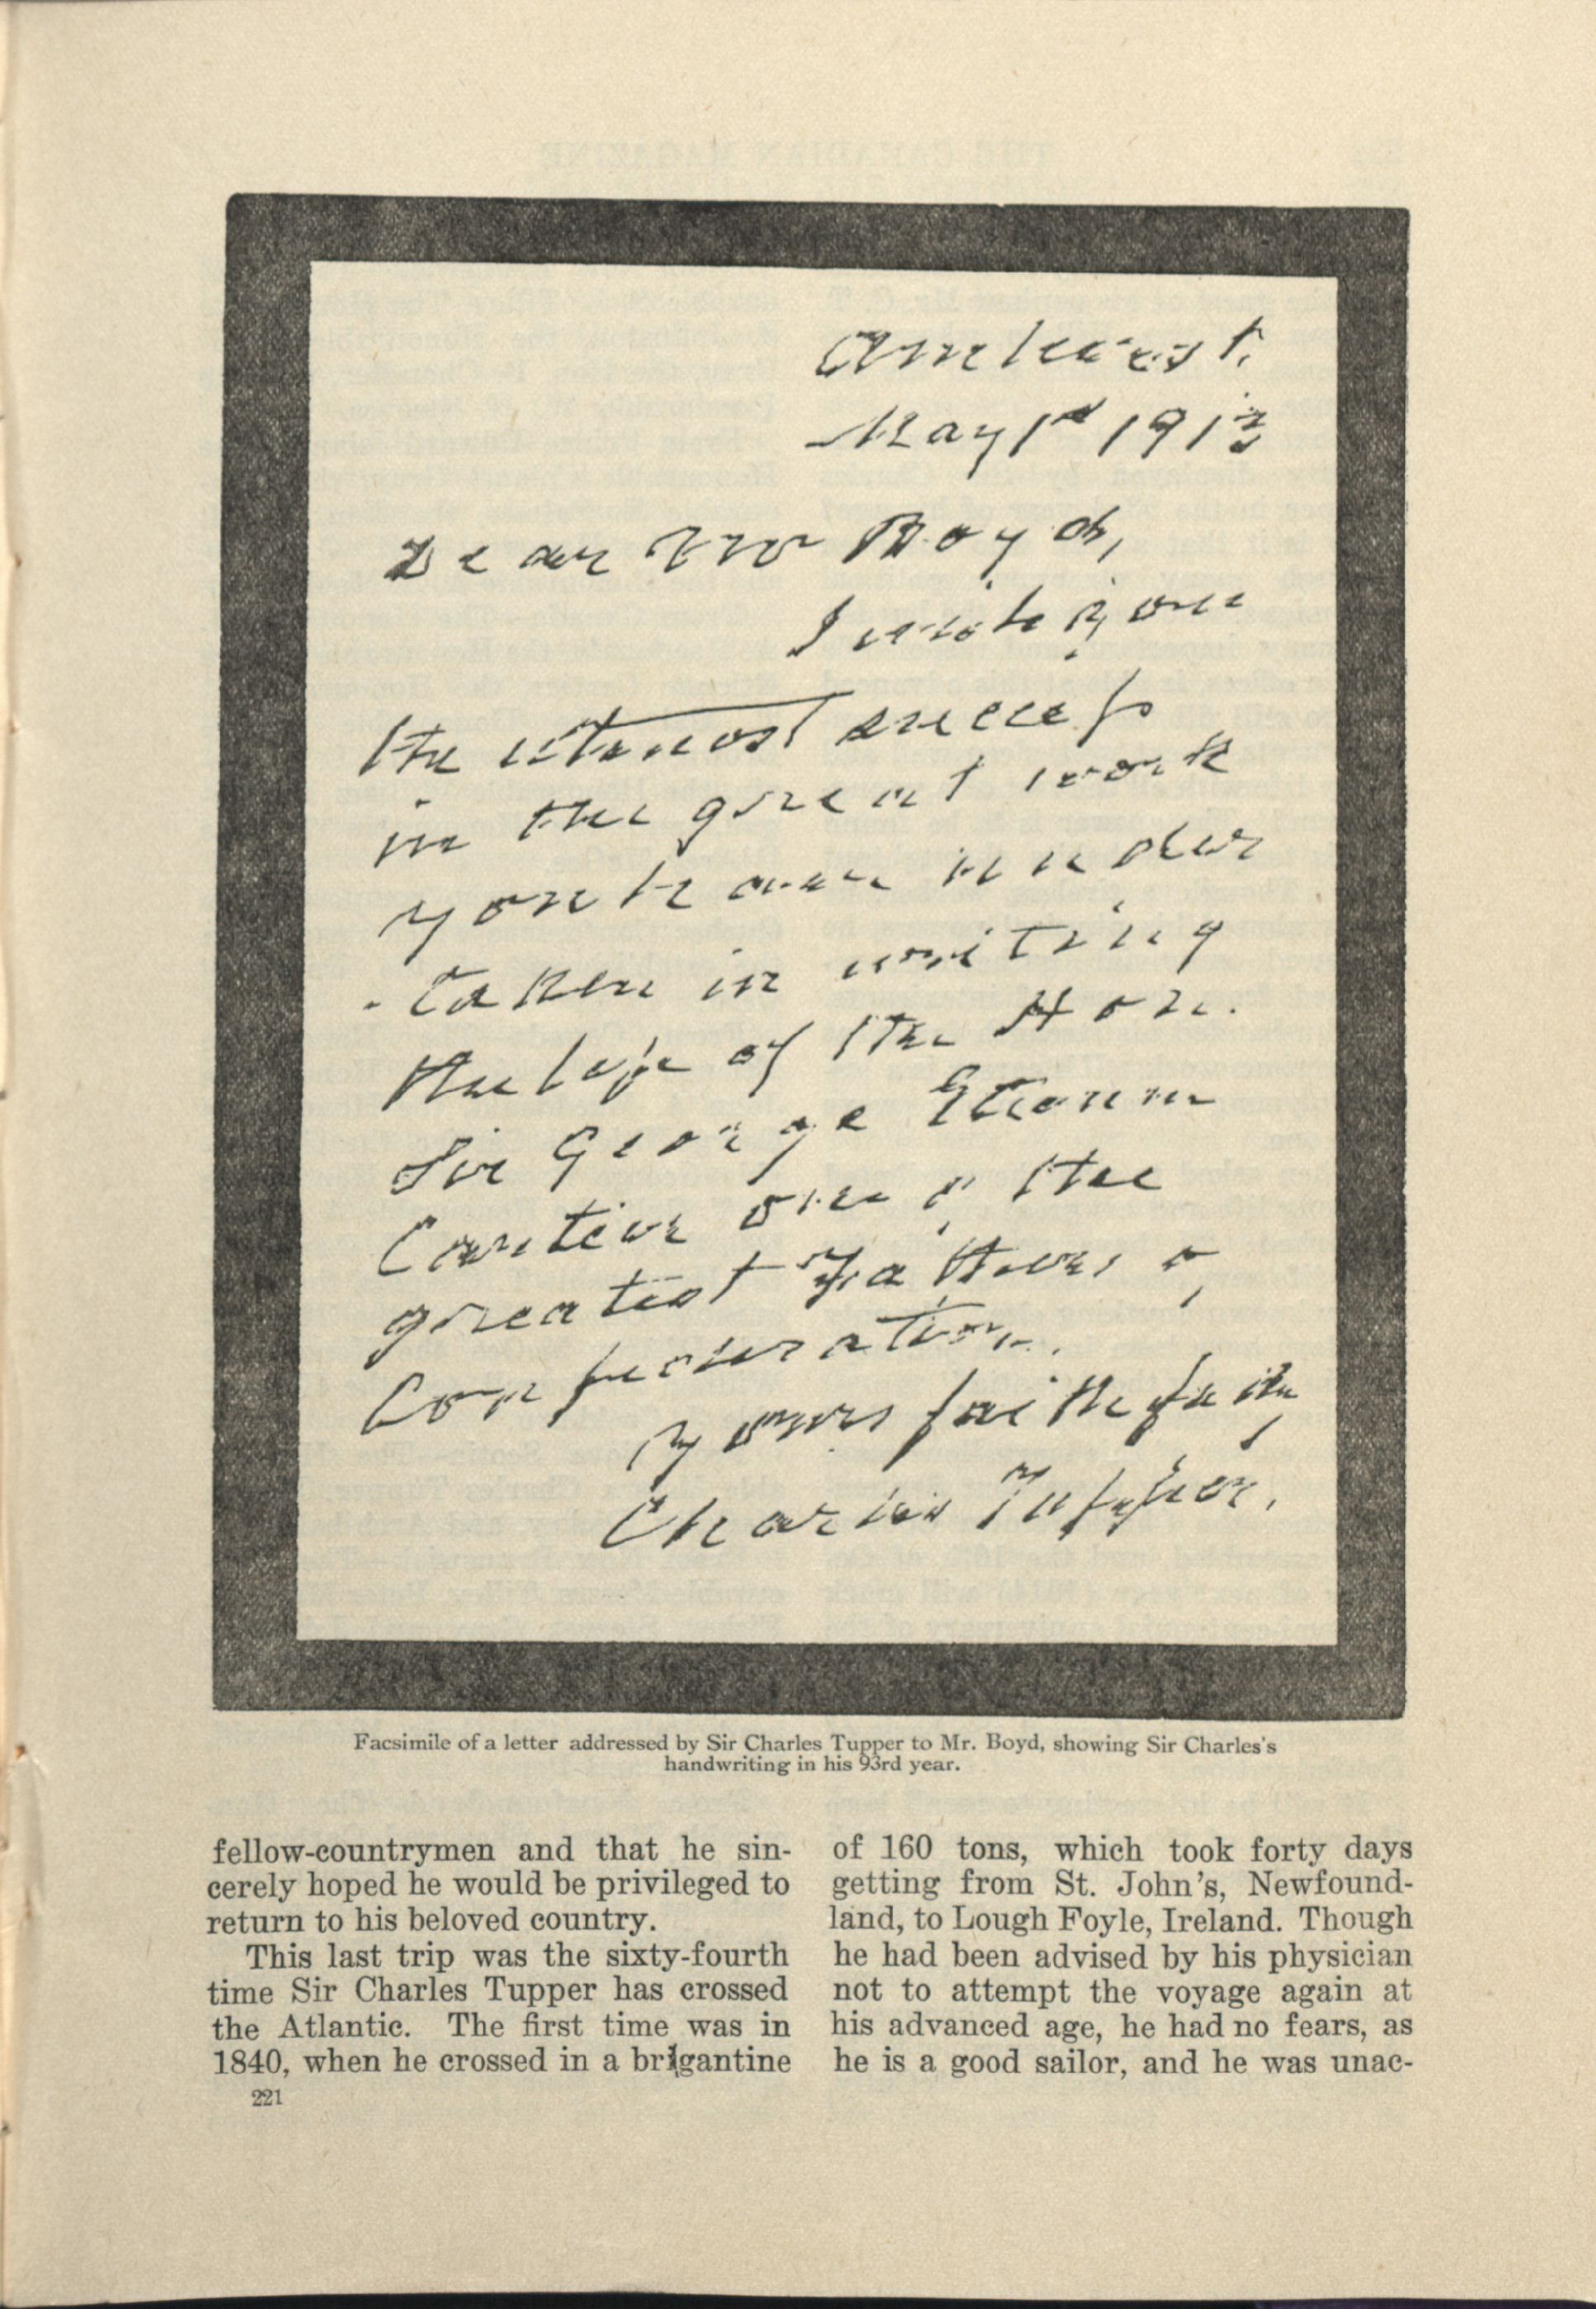 Amherst.
May 1st 1913
Dear Mr Boyd,
I wish you
the utmost success
in the great work
you have under
-taken in writing
the life of the Hon.
Sir George Etienne
Cartier one of the
greatest Fathers of
Confederation.
Yours faithfully
Charles Tupper.
Facsimile of a letter addressed by Sir Charles Tupper to Mr. Boyd, showing Sir Charles's
handwriting in his 93rd year.
fellow-countrymen and that he sin-
cerely hoped he would be privileged to
return to his beloved country.
This last trip was the sixty-fourth
time Sir Charles Tupper has crossed
the Atlantic. The first time was in
1840, when he crossed in a brigantine
221
of 160 tons, which took forty days
getting from St. John's, Newfound-
land, to Lough Foyle, Ireland. Though
he had been advised by his physician
not to attempt the voyage again at
his advanced age, he had no fears, as
he is a good sailor, and he was unac-